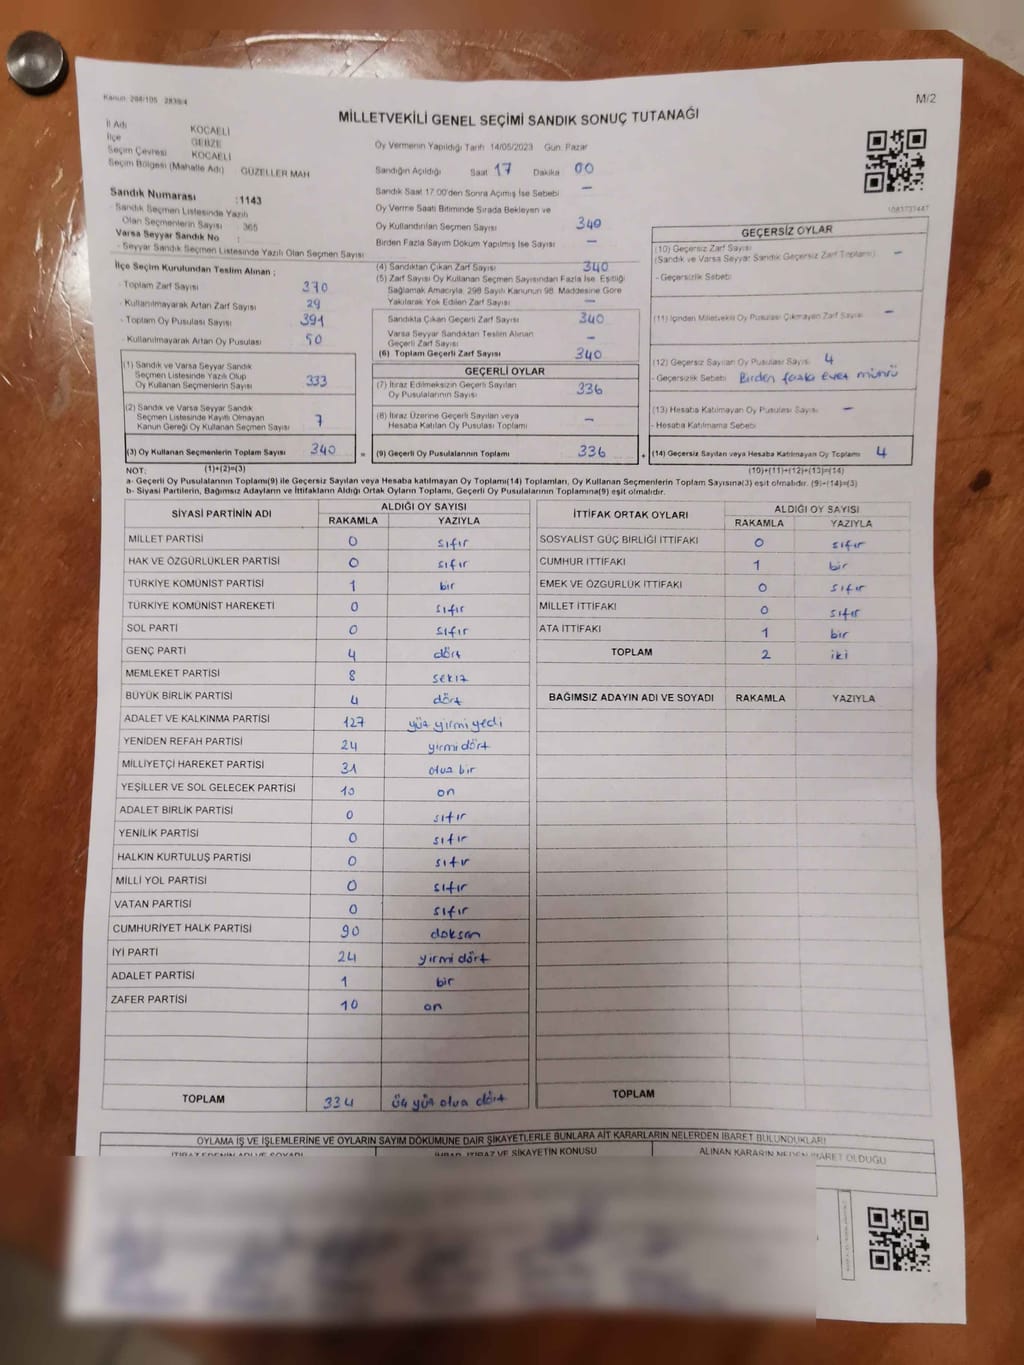 Kanun: 298/105 2839/4
M/2
MİLLETVEKİLİ GENEL SEÇİMİ SANDIK SONUÇ TUTANAĞI
İl Adı KOCAELİ
İlçe GEBZE
Seçim Çevresi KOCAELİ
Seçim Bölgesi (Mahalle Adı) GÜZELLER MAH
Sandık Numarası :1143
- Sandık Seçmen Listesinde Yazılı
Olan Seçmenlerin Sayısı : 365
Varsa Seyyar Sandık No :
- Seyyar Sandık Seçmen Listesinde Yazılı Olan Seçmen Sayısı
Oy Vermenin Yapıldığı Tarih 14/05/2023 Gün: Pazar
Sandığın Açıldığı Saat 17 Dakika 00
Sandık Saat 17.00'den Sonra Açılmış İse Sebebi –
Oy Verme Saati Bitiminde Sırada Bekleyen ve
Oy Kullandırılan Seçmen Sayısı 340
Birden Fazla Sayım Döküm Yapılmış İse Sayısı –
1083737447
İlçe Seçim Kurulundan Teslim Alınan ;
- Toplam Zarf Sayısı 370
- Kullanılmayarak Artan Zarf Sayısı 29
- Toplam Oy Pusulası Sayısı 391
- Kullanılmayarak Artan Oy Pusulası 50
(1) Sandık ve Varsa Seyyar Sandık
Seçmen Listesinde Yazılı Olup
Oy Kullanan Seçmenlerin Sayısı 333
(2) Sandık ve Varsa Seyyar Sandık
Seçmen Listesinde Kayıtlı Olmayan
Kanun Gereği Oy Kullanan Seçmen Sayısı 7
(3) Oy Kullanan Seçmenlerin Toplam Sayısı 340 =
(4) Sandıktan Çıkan Zarf Sayısı 340
(5) Zarf Sayısı Oy Kullanan Seçmen Sayısından Fazla İse, Eşitliği
Sağlamak Amacıyla, 298 Sayılı Kanunun 98. Maddesine Göre
Yakılarak Yok Edilen Zarf Sayısı –
Sandıkta Çıkan Geçerli Zarf Sayısı 340
Varsa Seyyar Sandıktan Teslim Alınan
Geçerli Zarf Sayısı –
(6) Toplam Geçerli Zarf Sayısı 340
GEÇERLİ OYLAR
(7) İtiraz Edilmeksizin Geçerli Sayılan
Oy Pusulalarının Sayısı 336
(8) İtiraz Üzerine Geçerli Sayılan veya
Hesaba Katılan Oy Pusulası Toplamı –
(9) Geçerli Oy Pusulalarının Toplamı 336 +
GEÇERSİZ OYLAR
(10) Geçersiz Zarf Sayısı –
(Sandık ve Varsa Seyyar Sandık Geçersiz Zarf Toplamı)
- Geçersizlik Sebebi
(11) İçinden Milletvekili Oy Pusulası Çıkmayan Zarf Sayısı –
(12) Geçersiz Sayılan Oy Pusulası Sayısı 4
- Geçersizlik Sebebi Birden fazla evet mührü
(13) Hesaba Katılmayan Oy Pusulası Sayısı –
- Hesaba Katılmama Sebebi
(14) Geçersiz Sayılan veya Hesaba Katılmayan Oy Toplamı 4
NOT: (1)+(2)=(3) (10)+(11)+(12)+(13)=(14)
a- Geçerli Oy Pusulalarının Toplamı(9) ile Geçersiz Sayılan veya Hesaba Katılmayan Oy Toplamı(14) Toplamları, Oy Kullanan Seçmenlerin Toplam Sayısına(3) eşit olmalıdır. (9)+(14)=(3)
b- Siyasi Partilerin, Bağımsız Adayların ve İttifakların Aldığı Ortak Oyların Toplamı, Geçerli Oy Pusulalarının Toplamına(9) eşit olmalıdır.
SİYASİ PARTİNİN ADI ALDIĞI OY SAYISI
RAKAMLA YAZIYLA
MİLLET PARTİSİ 0 sıfır
HAK VE ÖZGÜRLÜKLER PARTİSİ 0 sıfır
TÜRKİYE KOMÜNİST PARTİSİ 1 bir
TÜRKİYE KOMÜNİST HAREKETİ 0 sıfır
SOL PARTİ 0 sıfır
GENÇ PARTİ 4 dört
MEMLEKET PARTİSİ 8 sekiz
BÜYÜK BİRLİK PARTİSİ 4 dört
ADALET VE KALKINMA PARTİSİ 127 yüz yirmi yedi
YENİDEN REFAH PARTİSİ 24 yirmi dört
MİLLİYETÇİ HAREKET PARTİSİ 31 otuz bir
YEŞİLLER VE SOL GELECEK PARTİSİ 10 on
ADALET BİRLİK PARTİSİ 0 sıfır
YENİLİK PARTİSİ 0 sıfır
HALKIN KURTULUŞ PARTİSİ 0 sıfır
MİLLİ YOL PARTİSİ 0 sıfır
VATAN PARTİSİ 0 sıfır
CUMHURİYET HALK PARTİSİ 90 doksan
İYİ PARTİ 24 yirmi dört
ADALET PARTİSİ 1 bir
ZAFER PARTİSİ 10 on
TOPLAM 334 üç yüz otuz dört
İTTİFAK ORTAK OYLARI ALDIĞI OY SAYISI
RAKAMLA YAZIYLA
SOSYALİST GÜÇ BİRLİĞİ İTTİFAKI 0 sıfır
CUMHUR İTTİFAKI 1 bir
EMEK VE ÖZGÜRLÜK İTTİFAKI 0 sıfır
MİLLET İTTİFAKI 0 sıfır
ATA İTTİFAKI 1 bir
TOPLAM 2 iki
BAĞIMSIZ ADAYIN ADI VE SOYADI RAKAMLA YAZIYLA
TOPLAM
OYLAMA İŞ VE İŞLEMLERİNE VE OYLARIN SAYIM DÖKÜMÜNE DAİR ŞİKAYETLERLE BUNLARA AİT KARARLARIN NELERDEN İBARET BULUNDUKLARI
İTİRAZ EDENİN ADI VE SOYADI İHBAR, İTİRAZ VE ŞİKAYETİN KONUSU ALINAN KARARIN NEDEN İBARET OLDUĞU